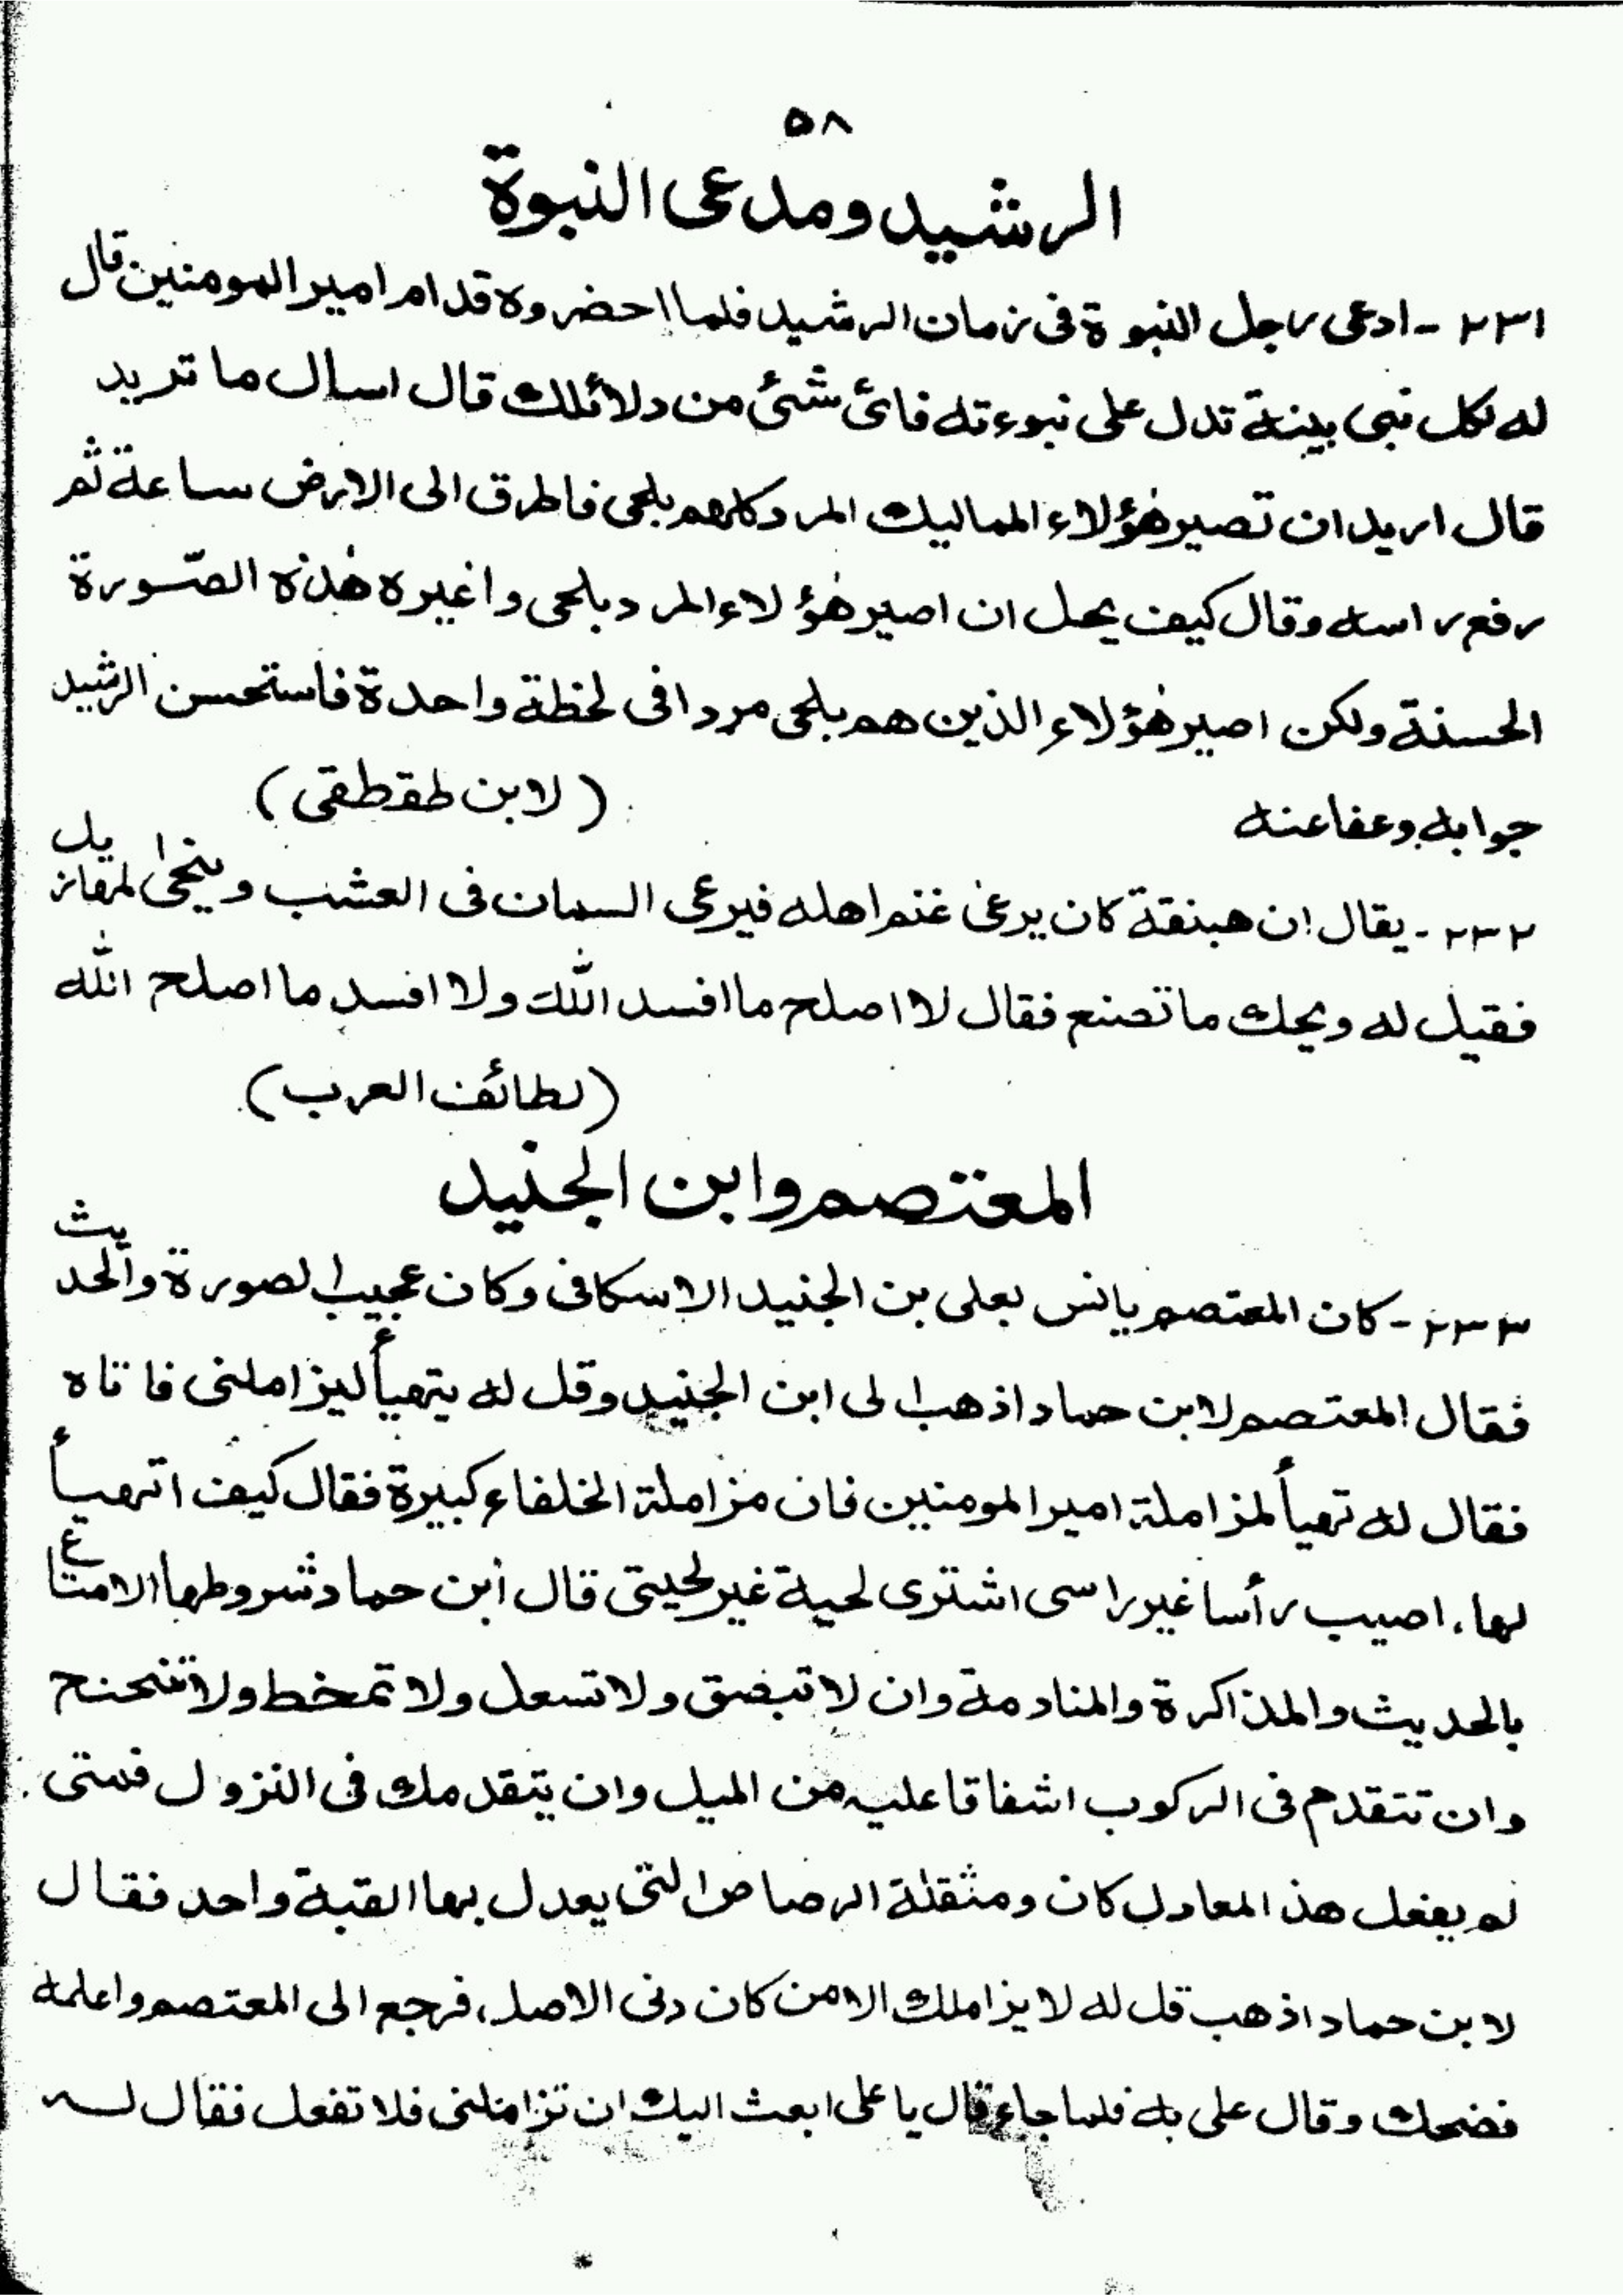 ٥٨
الرشيد ومدعى النبوة
٢٣١ - ادعى رجل النبوة فى زمان الرشيد فلما احضروه قدام امير المومنين قال
له لكل نبى بينة تدل على نبوءته فائ شئ من دلائلك قال اسال ما تريد
قال اريد ان تصير هٰؤلاء المماليك المرد كلهم بلحى فاطرق الى الارض ساعة ثم
رفع راسه وقال كيف يحل ان اصير هٰؤلاء المرد بلحى واغيره هٰذه الصّورة
الحسنة ولكن اصير هٰؤلاء الذين هم بلحى مردا فى لحظة واحدة فاستحسن الرشيد
جوابه وعفا عنه (لابن طقطقى)
٢٣٢ - يقال ان هبنقة كان يرعى غنم اهله فيرعى السمان فى العشب وينحى المهازيل
فقيل له ويحك ما تصنع فقال لا اصلح ما افسد الله ولا افسد ما اصلح الله
(لطائف العرب)
المعتصم وابن الجنيد
٢٣٣ - كان المعتصم يانس بعلى بن الجنيد الاسكافى وكان عجيب الصورة والحديث
فقال المعتصم لابن حماد اذهب الى ابن الجنيد وقل له يتهيأ ليزاملنى فاتاه
فقال له تهيأ لمزاملة امير المومنين فان مزاملة الخلفاء كبيرة فقال كيف اتهيأ
لها، اصيب رأسا غير راسى اشترى لحية غير لحيتى قال ابن حماد شروطها الامتاع
بالحديث والمذاكرة والمنادمة وان لا تبضق ولا تسعل ولا تمخط ولا تنحنح
وان تتقدم فى الركوب اشفاقا عليه من الميل وان يتقدمك فى النزول فمتى
لم يفعل هذ المعادل كان ومثقلة الرصاص التى يعدل بها القبة واحد فقال
لابن حماد اذهب قل له لا يزاملك الا من كان دنى الاصل، فرجع الى المعتصم واعلمه
فضحك وقال على به فلما جاء قال يا على ابعث اليك ان تزاملنى فلا تفعل فقال له